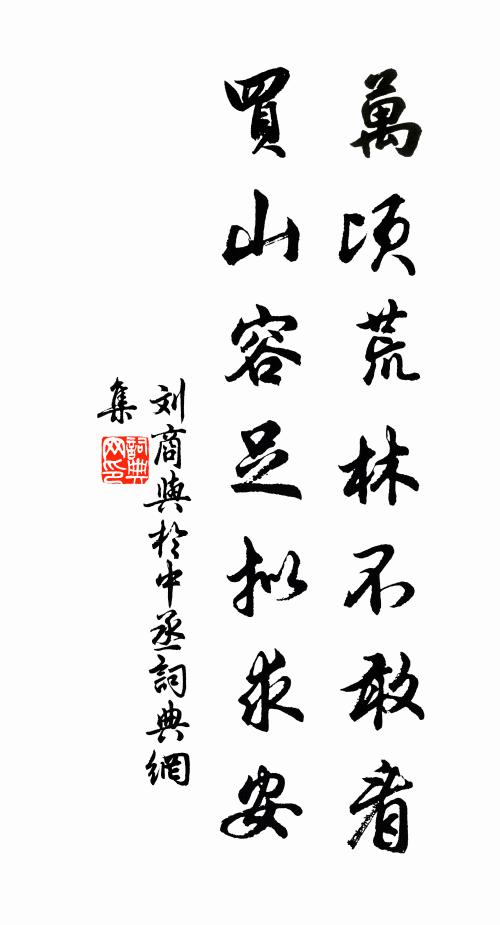 萬頃荒林不敢看
買山容足拟求安
刘商與於中丞詞典網
集
詞典网印